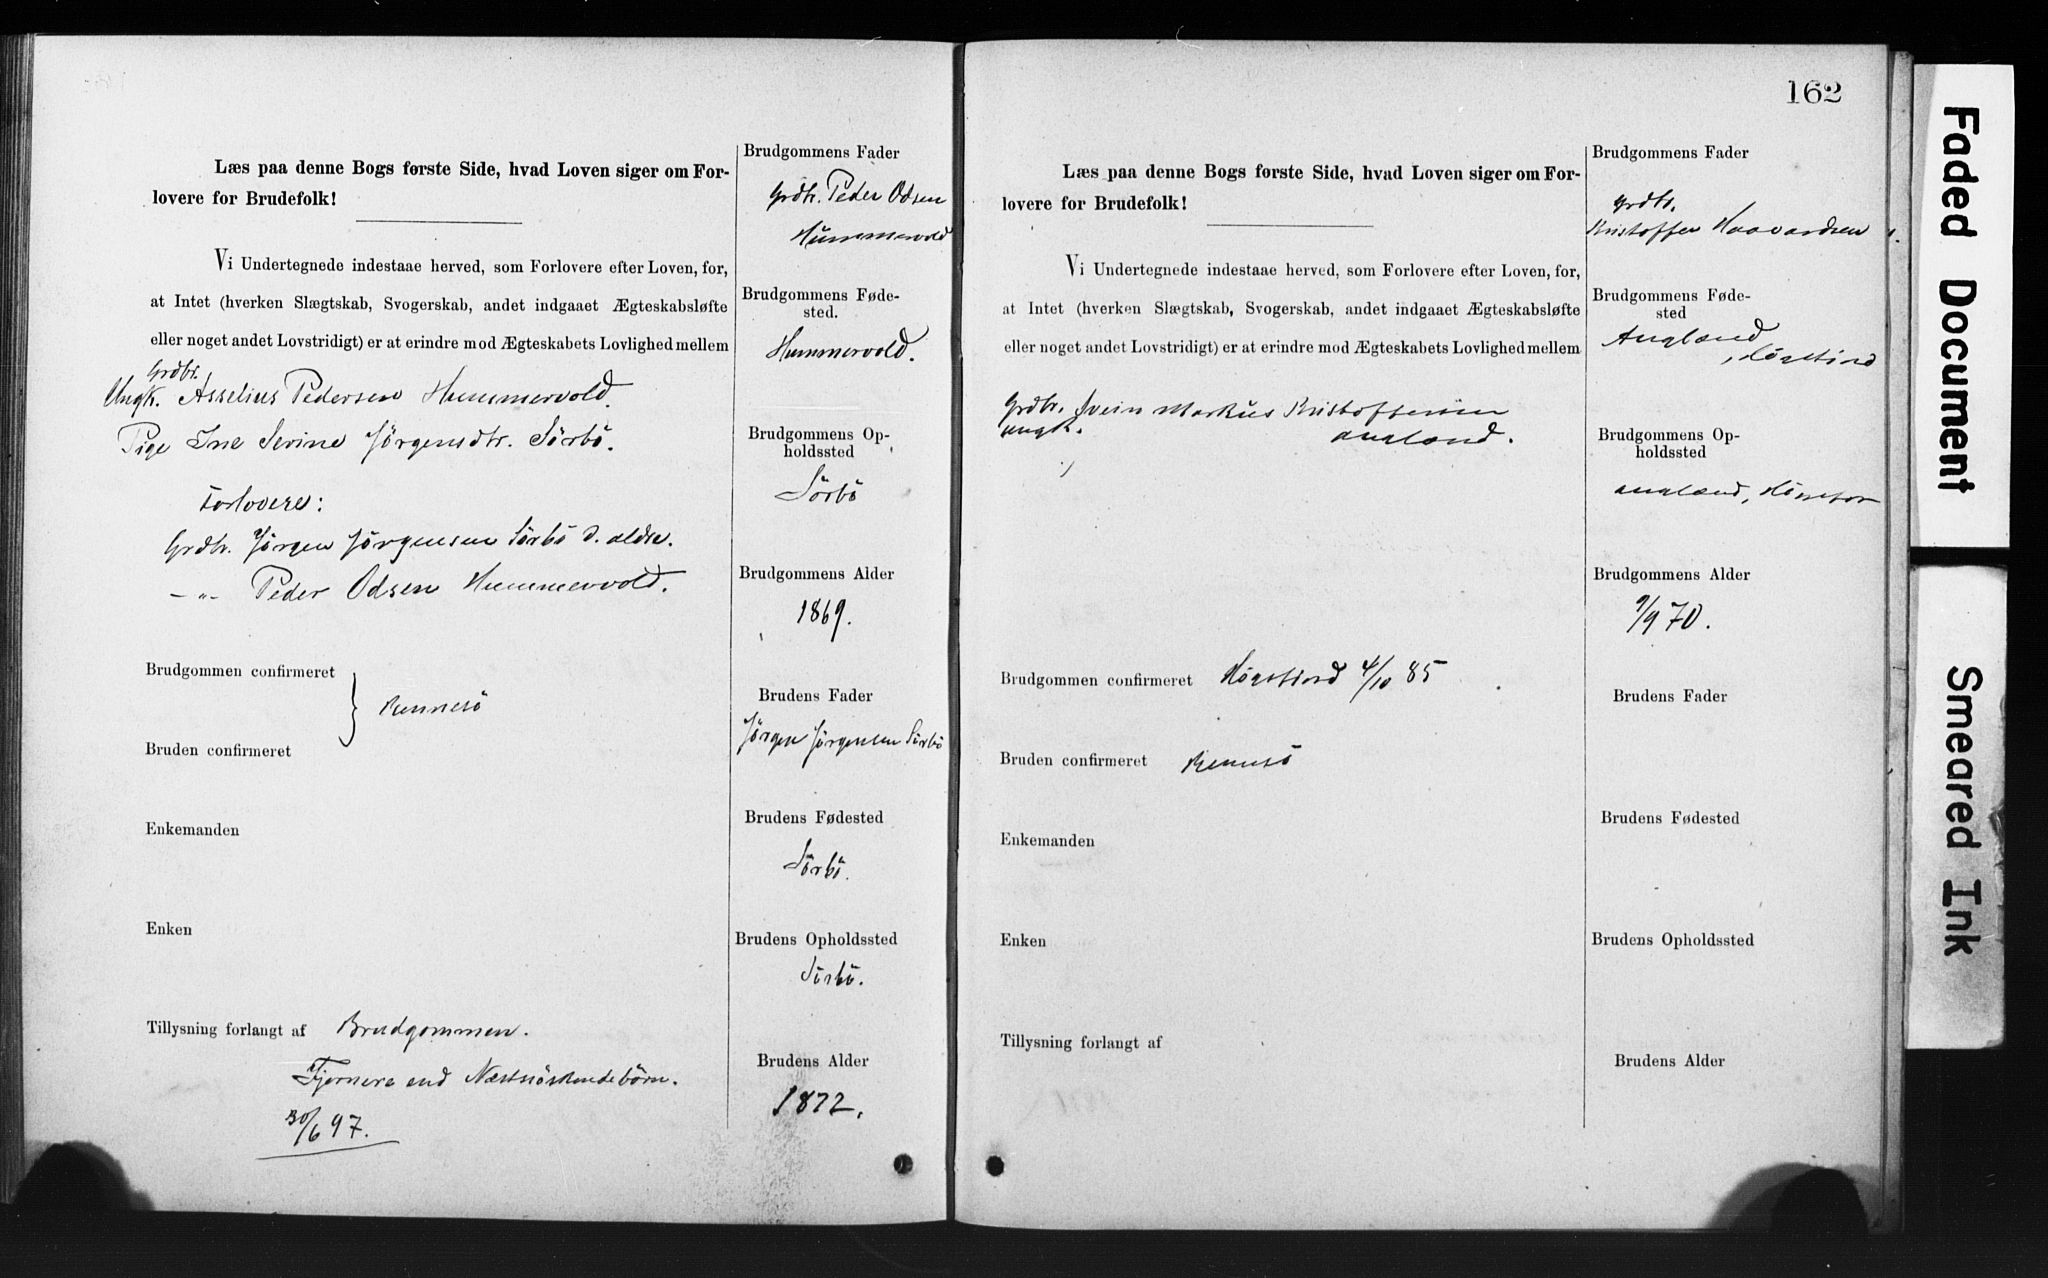 Læs paa denne Bogs første Side, hvad Loven siger om For-
lovere for Brudefolk!
Vi Undertegnede indestaae herved, som Forlovere efter Loven, for,
at Intet (hverken Slægtskab, Svogerskab, andet indgaaet Ægteskabsløfte
eller noget andet Lovstridigt) er at erindre mod Ægteskabets Lovlighed mellem
Grdbr.
Ungk. Asselius Pedersen Hummervold.
Pige Ine Serine Jørgensdtr. Sörbö.
Forlovere:
Grdbr. Jørgen Jørgensen Sörbö d. aldre.
-"- Peder Odsen Hummervold.
Brudgommen confirmeret
Rennesö
Bruden confirmeret
Enkemanden
Enken
Tillysning forlangt af Brudgommen.
Fjernere end Næstsöskendebörn.
30/6 97.
Brudgommens Fader
Grdbr. Peder Odsen
Hummervold
Brudgommens Føde-
sted.
Hummervold.
Brudgommens Op-
holdssted
Sörbö
Brudgommens Alder
1869.
Brudens Fader
Jørgen Jørgensen Sörbö
Brudens Fødested
Sörbö.
Brudens Opholdssted
Sörbö.
Brudens Alder
1872.
162
Læs paa denne Bogs første Side, hvad Loven siger om For-
lovere for Brudefolk!
Vi Undertegnede indestaae herved, som Forlovere efter Loven, for,
at Intet (hverken Slægtskab, Svogerskab, andet indgaaet Ægteskabsløfte
eller noget andet Lovstridigt) er at erindre mod Ægteskabets Lovlighed mellem
Grdbr. Svein Markus Kristoffersen
ungk. Augland.
Brudgommen confirmeret Høgsfjord 4/10 85
Bruden confirmeret Rennesö
Enkemanden
Enken
Tillysning forlangt af
Brudgommens Fader
Grdbr.
Kristoffer Haavardsen
Brudgommens Føde-
sted
Augland
, Høgsfjord
Brudgommens Op-
holdssted
Augland,
Brudgommens Alder
9/9 70.
Brudens Fader
Brudens Fødested
Brudens Opholdssted
Brudens Alder
Faded Document
Smeared Ink